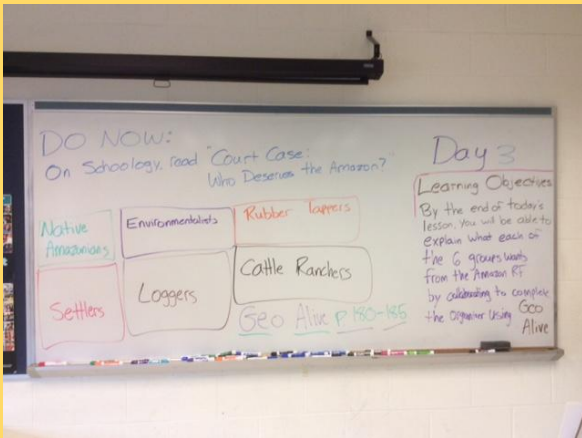 DO NOW:
On Schoology, read "Court Case:
Who Deserves the Amazon?"
Native
Amazonians
Environmentalists
Rubber Tappers
Settlers
Loggers
Cattle Ranchers
Geo Alive p. 180-185
Day 3
Learning Objectives
By the end of today's
lesson, You will be able to
explain what each of
the 6 groups wants
from the Amazon RF
by collaborating to complete
the Organizer Using Geo
Alive